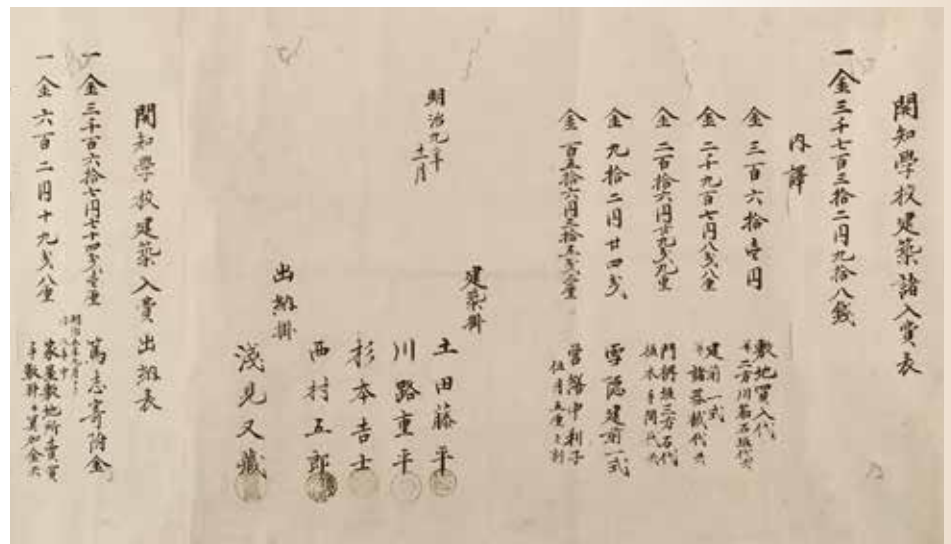 開知學校建築諸入費表
一金三千七百三拾二円九拾八銭
内譯
金三百六拾壱円
敷地買入代
金二千九百七円八戋八厘
建前一式
金二百拾六円廿九戋九厘
金九拾二円廿四戋
雪隠建前一式
金百五拾六円三拾五戋八厘
営繕中利子
明治九年
十二月
建築掛
土田藤平
川路重平
杉本吉士
西村五郎
出納掛
淺見又藏
開知學校建築入費出納表
一金三千百六拾七円七十四戋八壱厘
篤志寄附金
一金六百二円十九戋八厘
家屋敷地所売買